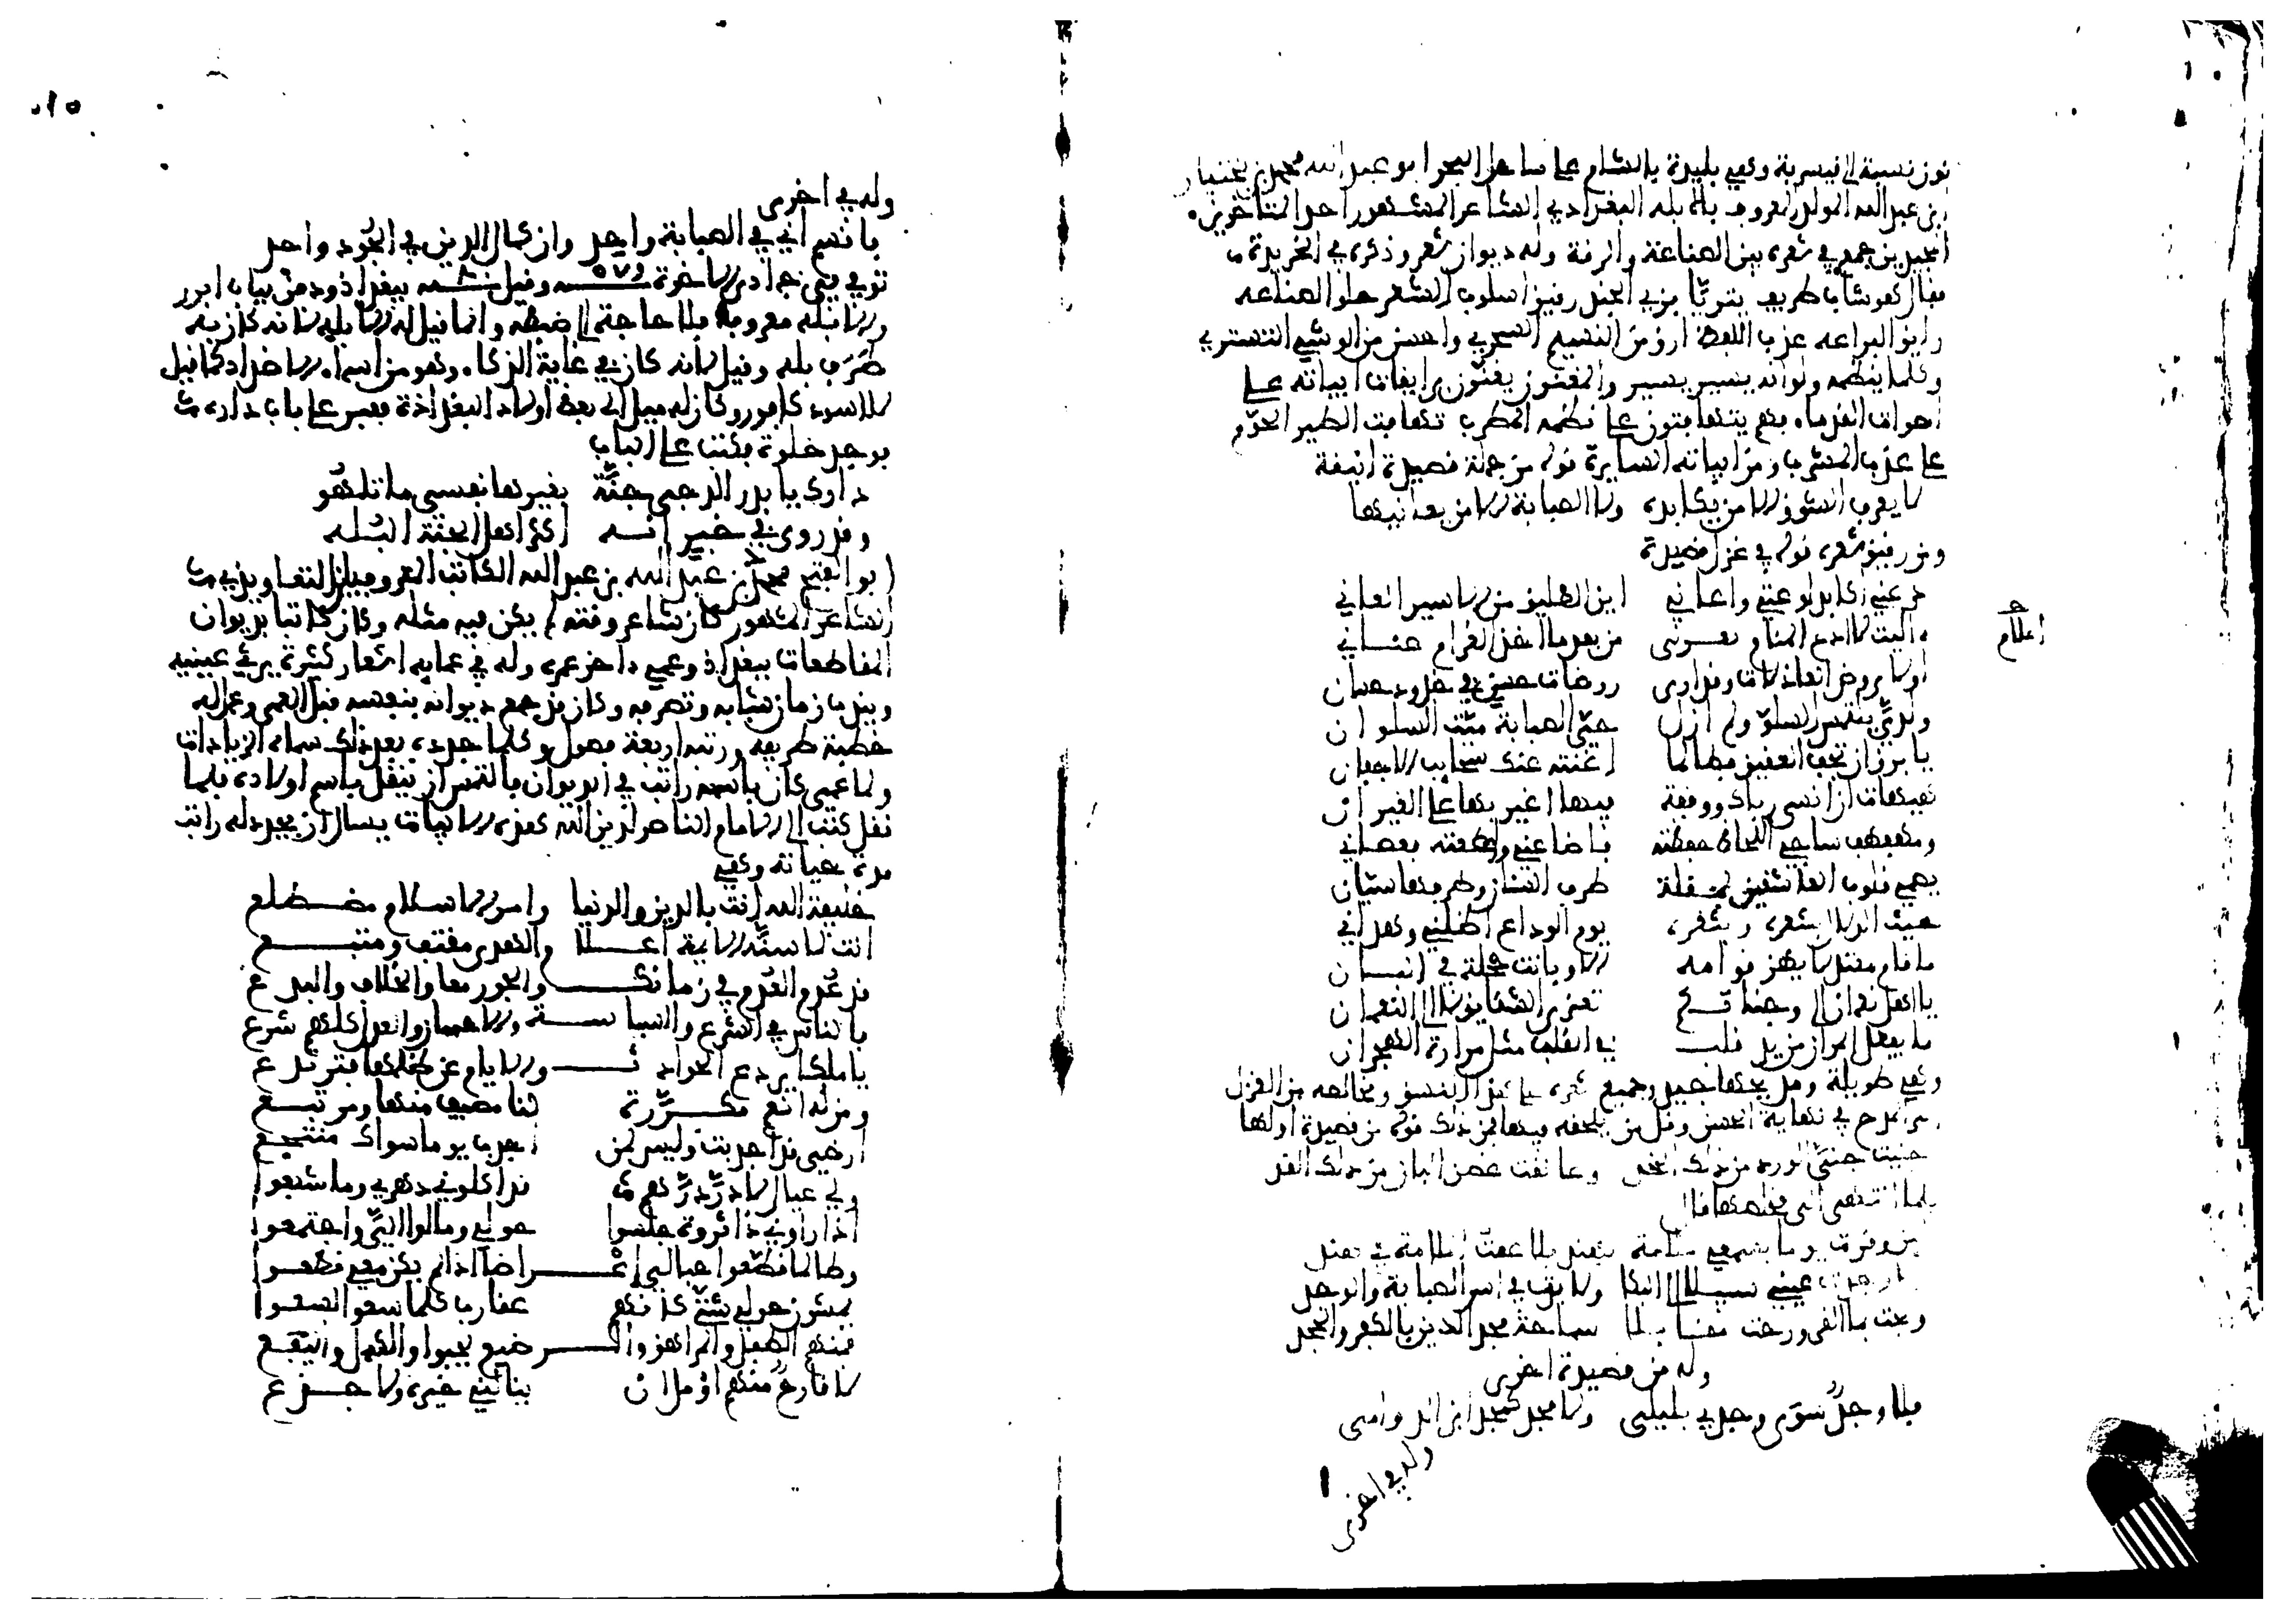 نون نسبة الى قيسرية وهي بليدة بالشام على ساحل البحر ابو عبد الله محمد بن بختيار
ابن عبد الله المولد المعروف بالابله البغدادي الشاعر المشهور احد المتاخرين
المجيدين جمع في شعره بين الصناعة والرقة وله ديوان شعر وذكره في الخريدة
فقال هو شاب ظريف يتزيا بزي الجند رقيق اسلوب الشعر حلو الصناعه
رايق البراعه عذب اللفظ ارق من النسيم السحري واحسن من الوشي التستري
وكلما ينظمه ولو انه يسير يسير والمغنون يغنون برايقات ابياته على
اصوات القدماء فهم يتهافتون على نظمه المطرب تهافت الطير الحوم
على عذب المشرب ومن ابياته السايرة قوله من جملة قصيدة انيقة
لا يعرف الشوق الا من يكابده ولا الصبابة الا من يعانيها
ومن رقيق شعره قوله في غزل قصيدة
دعني اكابد لوعتي واعاني اين الطليق من الاسير العاني
اليت لا ادع الملام يغرني من بعد ما اخذ الغرام عناني
اعلام
اولا تروض العاذلات وقد ارى روضات حسن في خدود حسان
ولدي يلتمس السلو ولم ازل حي الصبابة ميت السلوان
يا برق ان تجف العقيق فطالما اغنته عنك سحايب الاجفان
هيهات ان انسى رباك ووقفة فيها اغير بها على الغيران
ومهفهف ساجي اللحاظ حفظته فاضاعني واطعته فعصاني
يصمي قلوب العاشقين بمقلة طرف السنان وطرفها سيان
خنث الدلال بشعره وبثغره يوم الوداع اضلني وهداني
ما قام معتدلا يهز قوامه الا وبانت خجلة في البان
يا اهل نعمان الى وجناتكم تعزى الشقايق لا الى النعمان
ما يفعل المران من يد قلب في القلب مثل مرارة الهجران
وهي طويلة ومديحها جيد وجميع شعره على هذا النسق ومخالصه من الغزل
الى المدح في نهاية الحسن وقل من يلحقه فيها فمن ذلك قوله من قصيدة اولها
جنيت جني الورد من ذلك الخد وعانقت غصن البان من ذلك القد
فلما انتهى الى مخلصها قال
لئن وقرت يوما بسمعي ملامة لهند فلا عفت الملامة في هند
ولا وجدت عيني سبيلا الى البكا ولا بت في اسر الصبابة والوجد
وبحت بما القى ورحت مقابلا سماحة مجد الدين بالكفر والجحد
وله من قصيدة اخرى
فلا وجد سوى وجدي بليلى ولا مجد كمجد ابن الدوامي
وله في اخرى
وله في اخرى
يا نسم اني في الصبابة واحد وان كمال الدين في الجود واحد
توفي في جمادى الاخرة ٥٧٩ وقيل ببغداذ ودفن بباب ابرز
والابله معروف فلا حاجة الى ضبطه وانما قيل له الابله لانه كان به
طرف بله وقيل لانه كان في غاية الذكاء وهو من اسماء الاضداد كما قيل
للاسود كافور وكان له ميل الى بعض اولاد البغداذة فعبر على باب داره
فوجد خلوة فكتب على الباب
دارك يا بدر الدجى جنة بغيرها نفسي ما تلهو
وقد روي في خبر انه اكثر اهل الجنة البله
ابو الفتح محمد بن عبيد الله بن عبد الله الكاتب المعروف بابن التعاويذي
الشاعر المشهور كان شاعر وقته لم يكن فيه مثله وكان كاتبا بديوان
المقاطعات ببغداذ وعمي داخر عمره وله في عماه اشعار كثيرة يرثي عينيه
ويندب زمان شبابه وتصرفه وكان قد جمع ديوانه بنفسه قبل العمى وعمل له
خطبة ظريفه ورتبه اربعة فصول وكلما جدده بعد ذلك سماه الزيادات
ولما عمي كان باسمه راتب في الديوان فالتمس ان ينقل باسم اولاده فلما
نقل كتب الى الامام الناصر لدين الله هذه الابيات يسال ان يجدد له راتب
مدة حياته وهي
خليفة الله انت بالدين والدنيا وامر الاسلام مضطلع
انت لما سنه الايمة اعلا والهدى مقتف ومتبع
قد عدم العدم في زمانك والجور معا والخلاف والبدع
فالناس في الشرع والسياسة والاحسان والعدل كلهم شرع
يا ملكا يردع الحوادث والايام عن ظلمها فترتدع
ومن له انعم مكررة لنا مصيف منها ومرتبع
ارضي قد اجدبت وليس لمن اجدب يوما سواك منتجع
ولي عيال لا در درهم قد اكلوني دهري وما شبعوا
اذا راوني ذا ثروة جلسوا حولي ومالوا الي واجتمعوا
وطالما قطعوا حبالي اعراضا اذا لم يكن معي قطعوا
يمشون حولي شتى كانهم عقارب كلما سعوا لسعوا
فمنهم الطفل والمراهق والرضيع يحبوا والكهل واليفع
لا قارح منهم اؤمل ان ينالني خيره ولا جذع